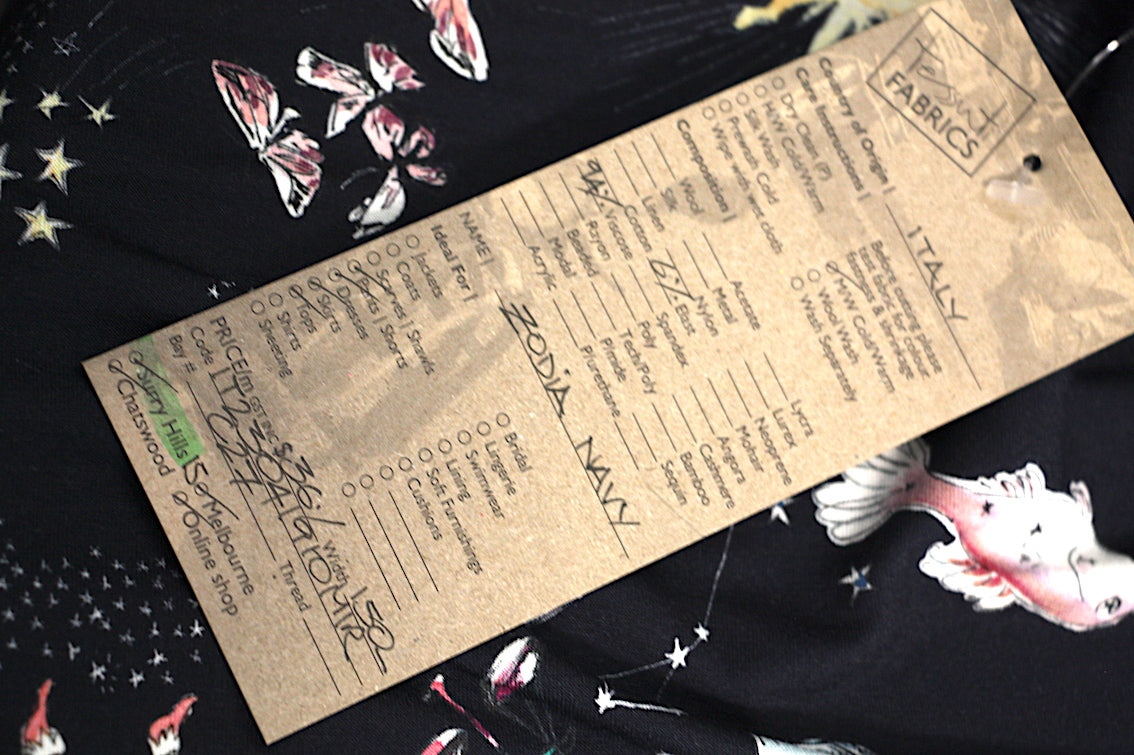 Tessuti
FABRICS
Country of Origin | ITALY
Care Instructions | Before cutting please test fabric for colour fastness & shrinkage
Dry Clean (P)
H/W Cold/Warm
M/W Cold/Warm
Silk Wash
Wool Wash
Prewash Cold
Wash Separately
Wipe with wet cloth
Composition |
Wool
Acetate
Lycra
Silk
Metal
Lurex
Linen
Nylon
Neoprene
Cottone
6% Elast
Mohair
94% Viscose
Spandex
Angora
Rayon
Poly
Cashmere
Beaded
Tech/Poly
Bamboo
Modal
Pinnade
Sequin
Acrylic
Plurethane
NAME | ZODIA NAVY
Ideal For |
Jackets
Bridal
Coats
Lingerie
Scarves | Shawls
Swimwear
Pants | Shorts
Lining
Dresses
Soft Furnishings
Skirts
Cushions
Tops
Shirts
Sheering
PRICE/m GST INC $36/ Width 150
Code | T230419ROMIR
Bay # C27 Thread
Surry Hills Melbourne
Chatswood Online shop